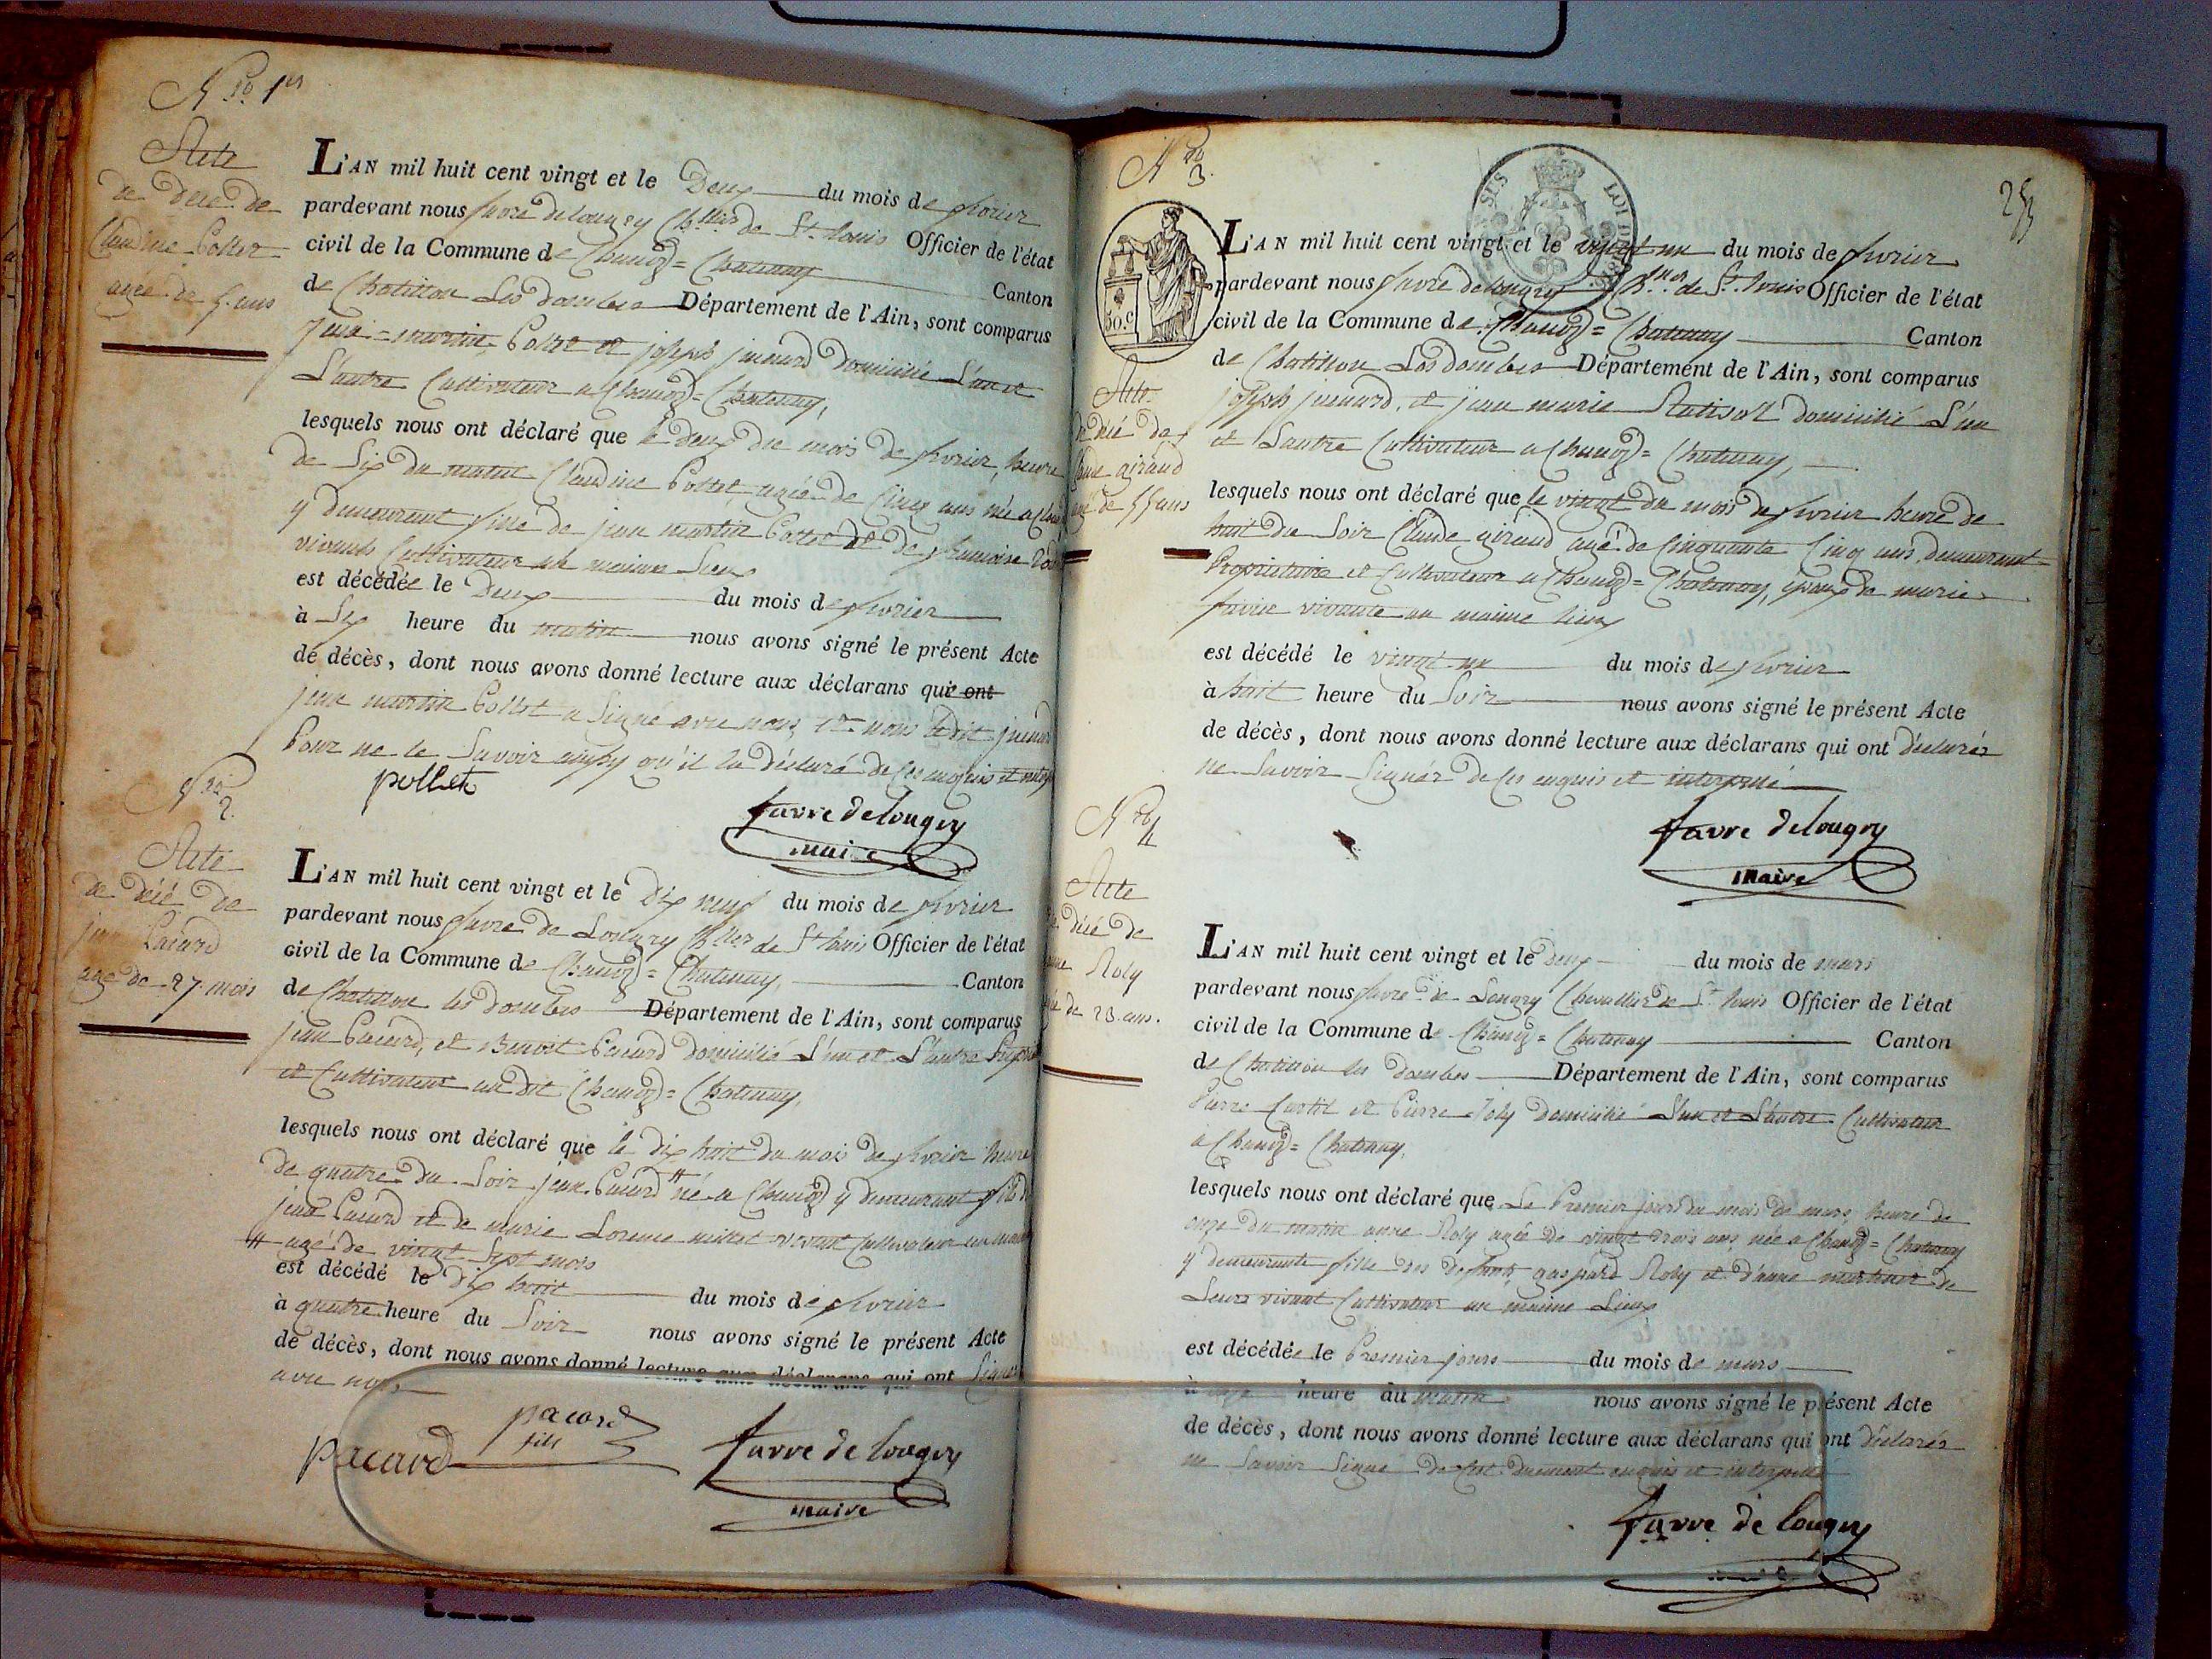 N.ro 1er
Acte
de décé de
Claudine Pollet
agée de 5. ans
L'AN mil huit cent vingt et le Deux du mois de fevrier
pardevant nous favre delongry Ch.llier de St. Louis Officier de l'état
civil de la Commune de Chaneg = Chatenay Canton
de Chatillon Les dombes Département de l'Ain, sont comparus
Jean = martin Pollet et joseph juenard domicilié L'un et
L'autre Cultivateur a Chaneg = Chatenay,
lesquels nous ont déclaré que le deux du mois de fevrier, heure
de Six du matin Claudine Pollet agée de Cinq ans née a
y demeurant fille de jean martin Pollet et de francoise
vivants Cultivateur au maime Lieux
est décédée le Deux du mois de fevrier
à Six heure du matin nous avons signé le présent Acte
de décès, dont nous avons donné lecture aux déclarans qui ont
jean martin Pollet a Signé avec nous, et non ledit juenard
Pour ne le Savoir ainsy qu'il la déclaré de Ces enquis et
pollet
favre delongry
maire
N.ro 2.
Acte
de décé de
jean Pacard
age de 27 mois
L'AN mil huit cent vingt et le Dix neuf du mois de fevrier
pardevant nous favre de Longry Ch.llier de St Louis Officier de l'état
civil de la Commune de Chaneg = Chatenay, Canton
de Chatillon les dombes Département de l'Ain, sont comparus
jean Pacard, et Benoit Pacard domicilié L'un et L'autre
et Cultivateur au dit Chaneg = Chatenay,
lesquels nous ont déclaré que le dix huit du mois de fevrier heure
de quatre du Soir jean Pacard # né a Chaneg y demeurant fils de
jean Pacard et de marie Lorence millet vivant Cultivateur au
# agé de vingt Sept mois
est décédé le dix huit du mois de fevrier
à quatre heure du Soir nous avons signé le présent Acte
de décès, dont nous avons donné lecture aux déclarans qui ont Signé
avec nous
pacard
pacard
fils
favre de longry
maire
N.ro 3.
253
50.c
Acte
de décé de
Claude giraud
agé de 55 ans
L'AN mil huit cent vingt et le vingt un du mois de fevrier
pardevant nous favre delongry Ch.llier de St. Louis Officier de l'état
civil de la Commune de Chaneg = Chatenay Canton
de Chatillon Les dombes Département de l'Ain, sont comparus
joseph juenard, et jean marie domicilié L'un
et Lautre Cultivateur a Chaneg = Chatenay,
lesquels nous ont déclaré que le vingt du mois de fevrier heure de
huit du Soir Claude giraud agé de Cinquante Cinq ans demeurant
Propriétaire et Cultivateur a Chaneg = Chatenay, epoux de marie
favier vivante au maime lieux
est décédé le vingt un du mois de fevrier
à huit heure du Soir nous avons signé le présent Acte
de décès, dont nous avons donné lecture aux déclarans qui ont déclarés
ne Savoir Signér de Ces enquis et interpellé
favre delongry
maire
N.ro 4
Acte
de décé de
anne Roly
agée de 23 ans.
L'AN mil huit cent vingt et le deux du mois de mars
pardevant nous favre de Longry Chevallier de St. Louis Officier de l'état
civil de la Commune de Chaneg = Chatenay Canton
de Chatillon les dombes Département de l'Ain, sont comparus
Pierre et Pierre Joly domicilié L'un et L'autre Cultivateur
a Chaneg = Chatenay.
lesquels nous ont déclaré que Le Premier jour du mois de mars, heure de
onze du matin anne Roly agée de vingt trois ans née a Chaneg = Chatenay
y demeurante fille des defunts gaspard Roly et d'anne de
Leurs vivant Cultivateur au maime Lieux
est décédée le Premier jours du mois de mars
à onze heure du matin nous avons signé le présent Acte
de décès, dont nous avons donné lecture aux déclarans qui ont déclarés
ne Savoir Signé de Cest enquis et interpellé
favre de longry